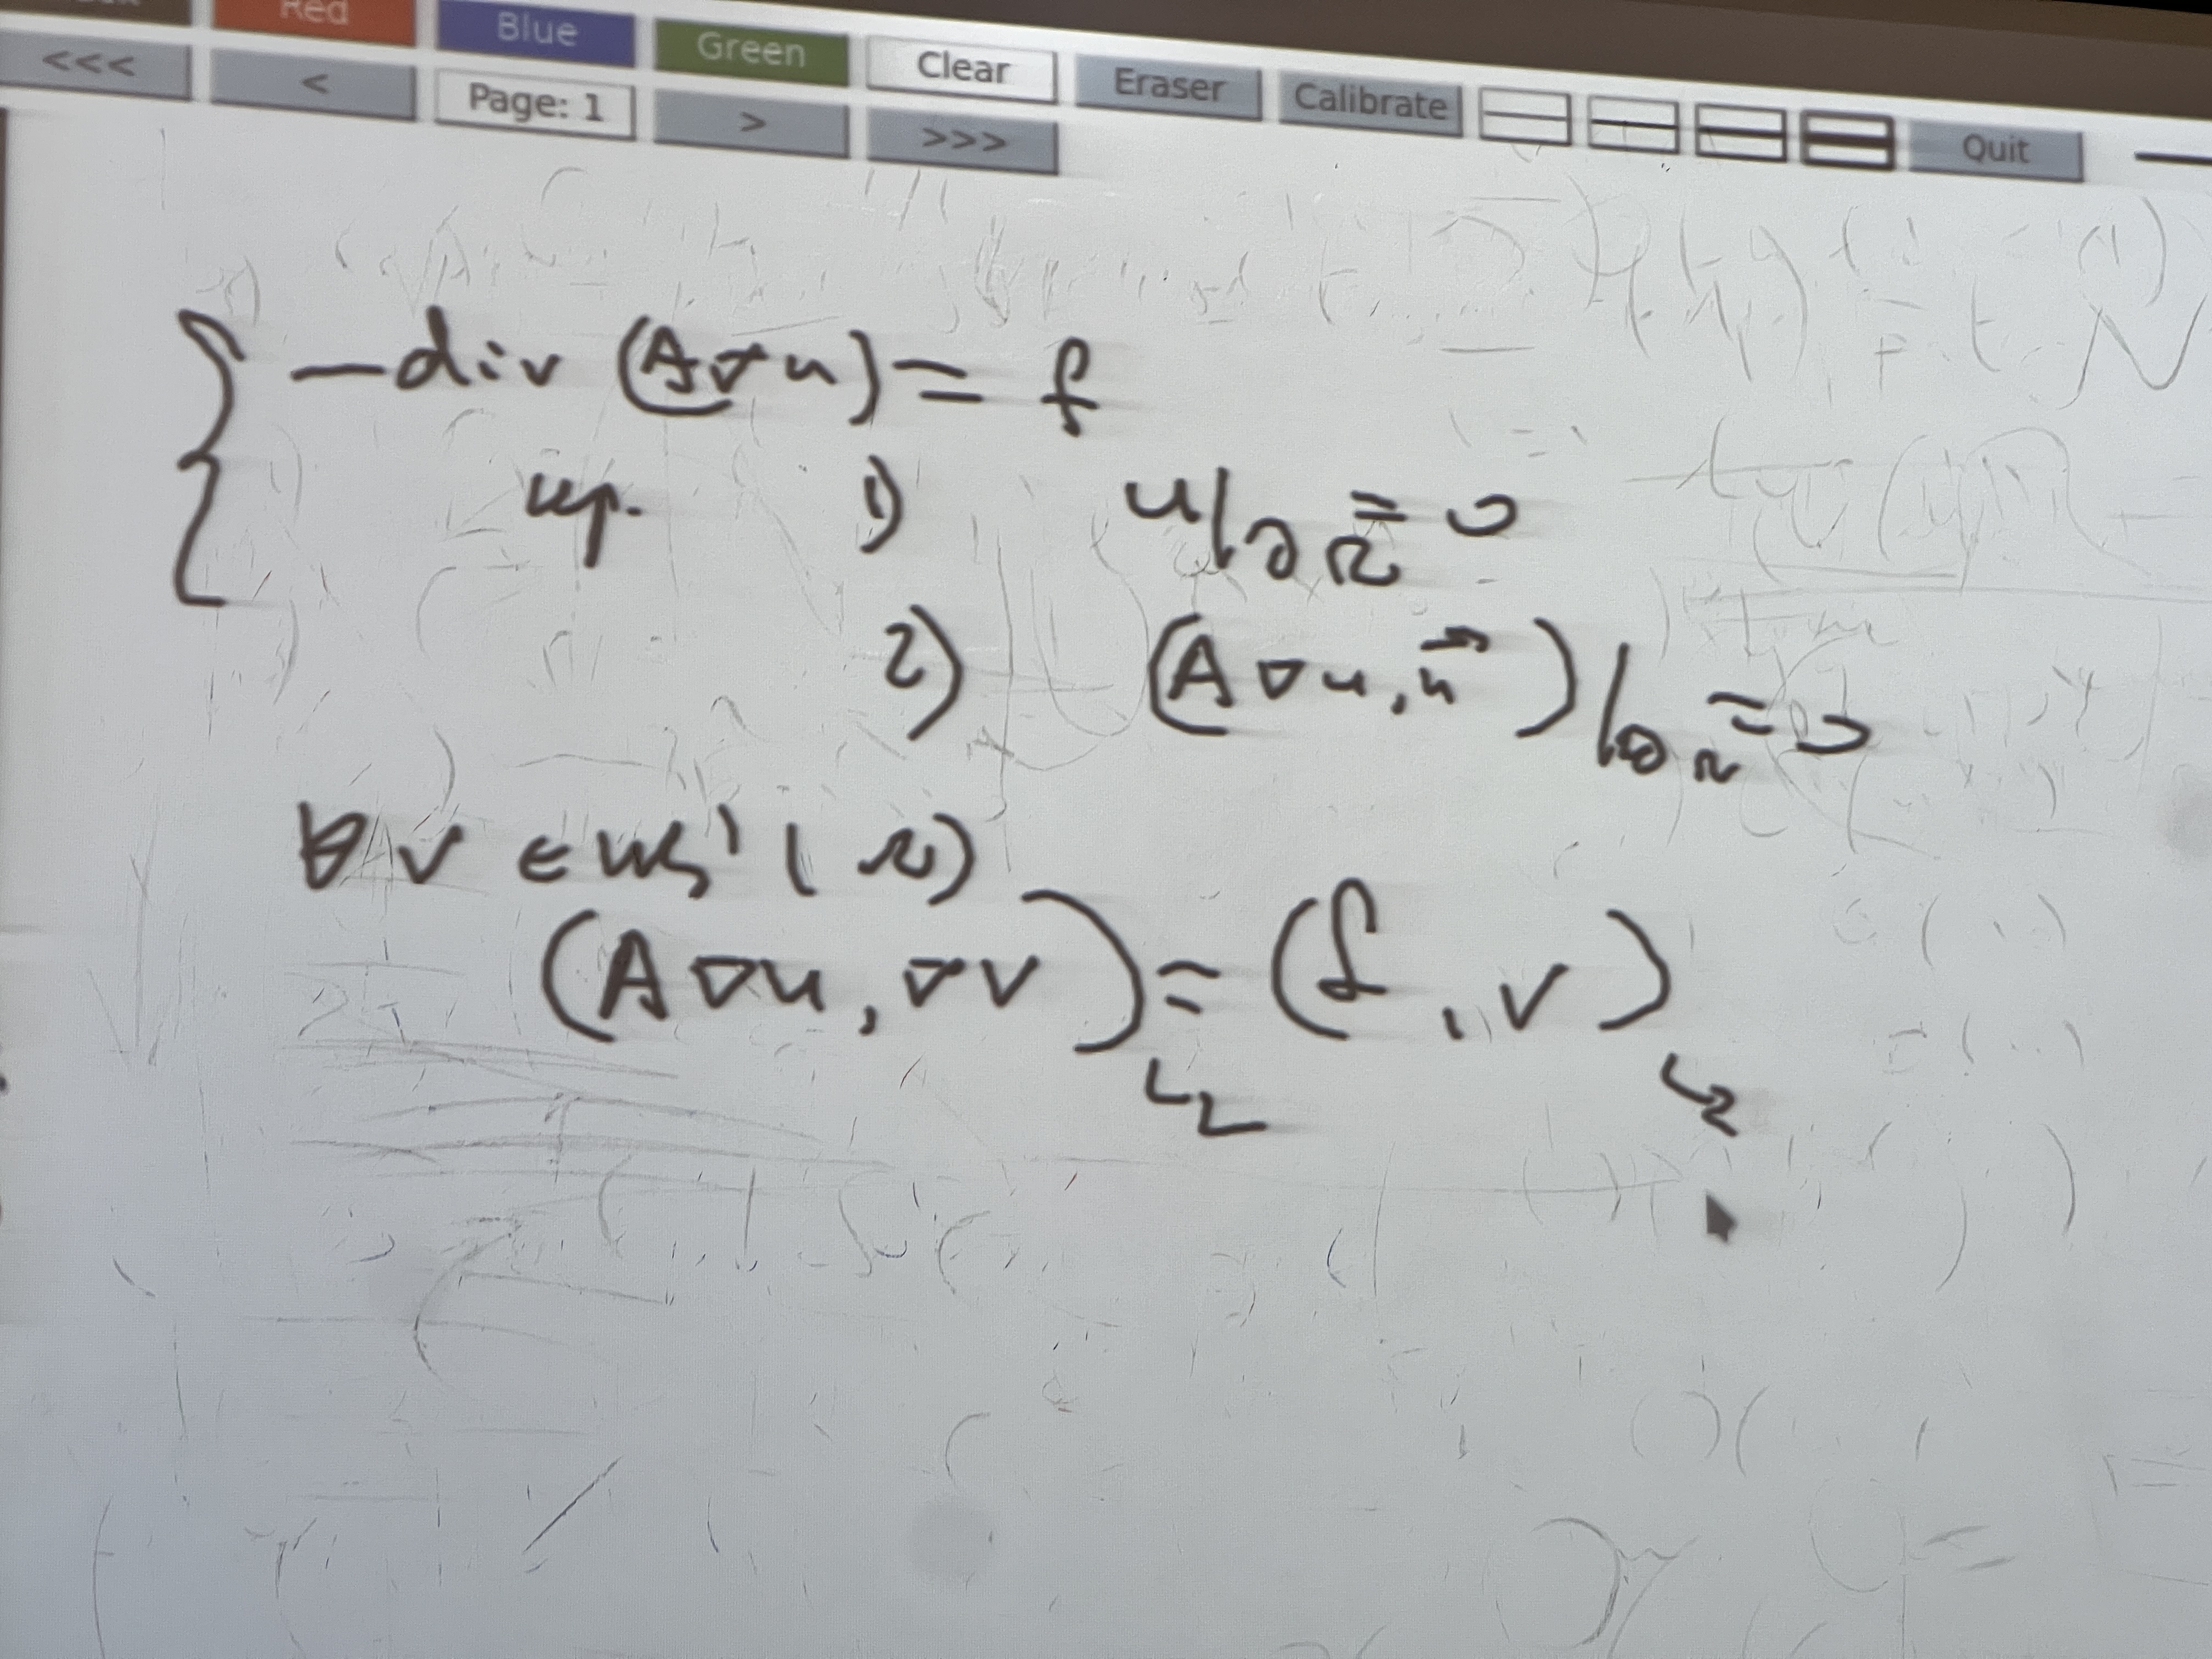 Red Blue Green Clear Eraser Calibrate Quit
<<< < Page: 1 > >>>
−div (A∇u) = f
кр. 1) u|∂Ω = 0
2) (A∇u, n⃗)|∂Ω = 0
∀ v ∈ W₂¹ (Ω)
(A∇u, ∇v)L₂ = (f, v)L₂